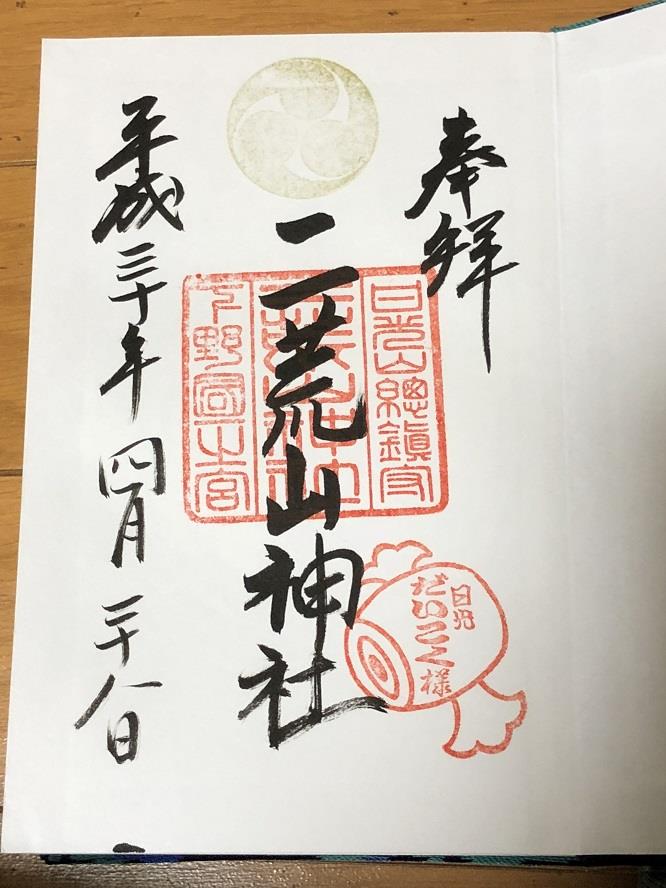 奉拝
日光山總鎮守
二荒山神社
下野國一之宮
日光
だいこく様
平成三十年四月二十八日